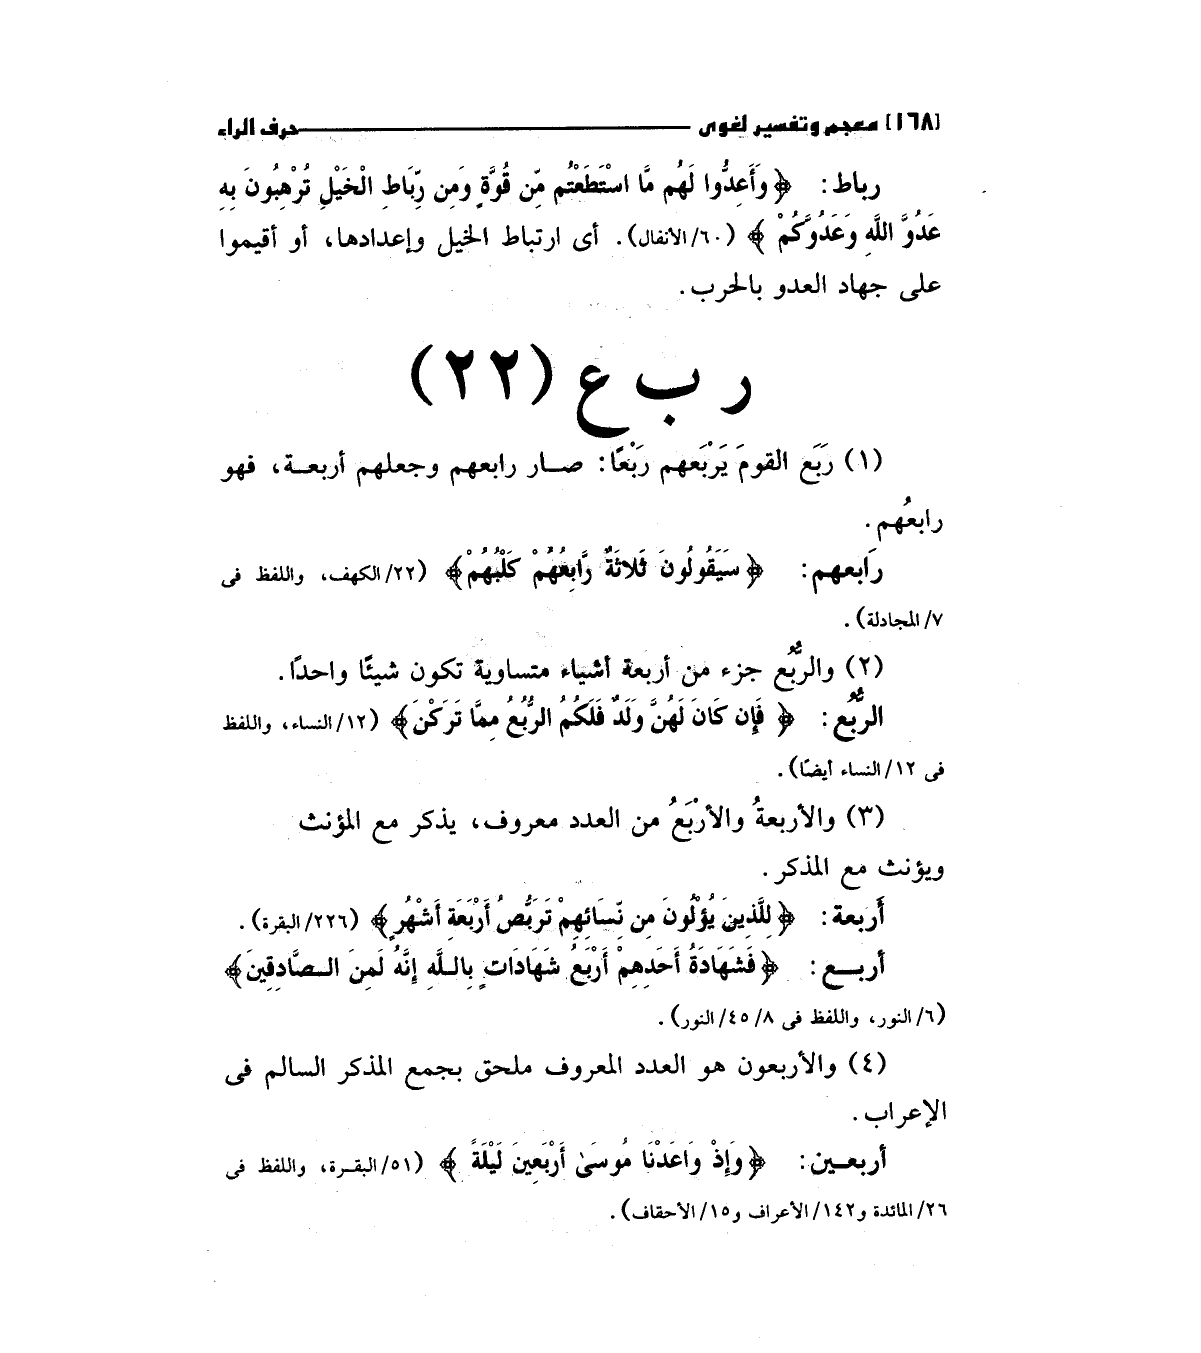 [١٦٨] معجم وتفسير لغوى حرف الراء
رباط: ﴿وَأَعِدُّوا لَهُم مَّا اسْتَطَعْتُم مِّن قُوَّةٍ وَمِن رِّبَاطِ الْخَيْلِ تُرْهِبُونَ بِهِ
عَدُوَّ اللَّهِ وَعَدُوَّكُمْ﴾ (٦٠/ الأنفال). أى ارتباط الخيل وإعدادها، أو أقيموا
على جهاد العدو بالحرب.
ر ب ع (٢٢)
(١) رَبَع القومَ يَرْبَعهم رَبْعًا: صار رابعهم وجعلهم أربعة، فهو
رابعُهم.
رَابعهم: ﴿سَيَقُولُونَ ثَلاثَةٌ رَّابِعُهُمْ كَلْبُهُمْ﴾ (٢٢/ الكهف، واللفظ فى
٧/ المجادلة).
(٢) والرُّبُع جزء من أربعة أشياء متساوية تكون شيئًا واحدًا.
الرُّبُع: ﴿فَإِن كَانَ لَهُنَّ وَلَدٌ فَلَكُمُ الرُّبُعُ مِمَّا تَرَكْنَ﴾ (١٢/ النساء، واللفظ
فى ١٢/ النساء أيضًا).
(٣) والأربعةُ والأرْبَعُ من العدد معروف، يذكر مع المؤنث
ويؤنث مع المذكر.
أَربعة: ﴿لِلَّذِينَ يُؤْلُونَ مِن نِّسَائِهِمْ تَرَبُّصُ أَرْبَعَةِ أَشْهُرٍ﴾ (٢٢٦/ البقرة).
أربع: ﴿فَشَهَادَةُ أَحَدِهِمْ أَرْبَعُ شَهَادَاتٍ بِاللَّهِ إِنَّهُ لَمِنَ الصَّادِقِينَ﴾
(٦/ النور، واللفظ فى ٨/ ٤٥/ النور).
(٤) والأربعون هو العدد المعروف ملحق بجمع المذكر السالم فى
الإعراب.
أربعين: ﴿وَإِذْ وَاعَدْنَا مُوسَىٰ أَرْبَعِينَ لَيْلَةً﴾ (٥١/ البقرة، واللفظ فى
٢٦/ المائدة و١٤٢/ الأعراف و١٥/ الأحقاف).